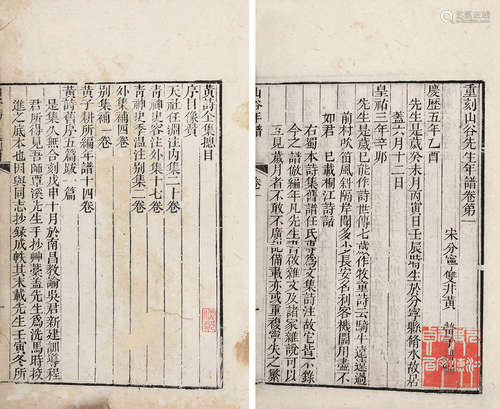 重刻山谷先生年譜卷第一
宋分寧雙井黃
慶歷五年乙酉
先生是歲癸未月丙寅日壬辰時生於分寧縣脩水故居
蓋六月十二日
皇祐三年辛卯
先生是歲已能作詩世傳七歲作牧童詩云騎牛遠遠過
前村吹笛風斜隔岸聞多少長安名利客機關用盡不
如君 已載桐江詩話
右蜀本詩集舊譜任氏專為文集詩注故它皆不錄
今之譜倣編年凡先生舊作雜文及諸家雜說可以
互見歲月者不敢不廣記備載亦或重複寧失之繁
山谷年譜 卷一
黃詩全集總目
序目像贊
天社任淵注內集二十卷
青神史容注外集十七卷
青神史季溫注別集二卷
外集補四卷
別集補一卷
黃子耕所編年譜十四卷
黃詩舊序五篇跋一篇
是集久無合刻戊申十月於南昌敎諭吳君新建訓導程
君所得見吾師覃溪先生手抄艸藁蓋先生為洗馬時校
進之底本也因與同志抄錄成帙其末載先生壬寅冬所